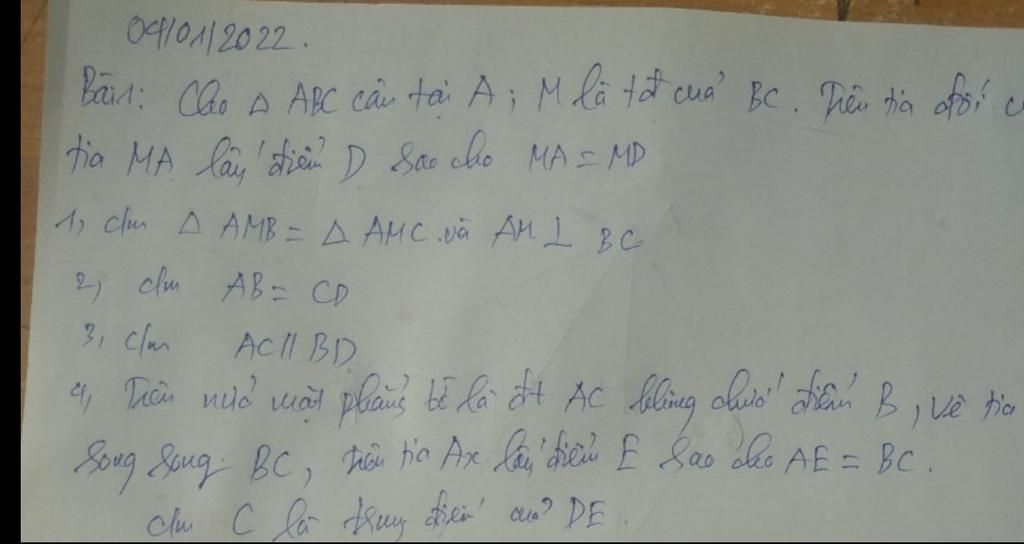 09/01/2022.
Bài 1: Cho △ ABC cân tại A ; M là tđ của BC. Trên tia đối c
tia MA lấy điểm D sao cho MA = MD
1, cm △ AMB = △ AMC và AM ⊥ BC
2, cm AB = CD
3, cm AC // BD
4, Trên nửa mặt phẳng bờ là đt AC không chứa điểm B, vẽ tia
song song BC, trên tia Ax lấy điểm E sao cho AE = BC.
cm C là trung điểm của DE.